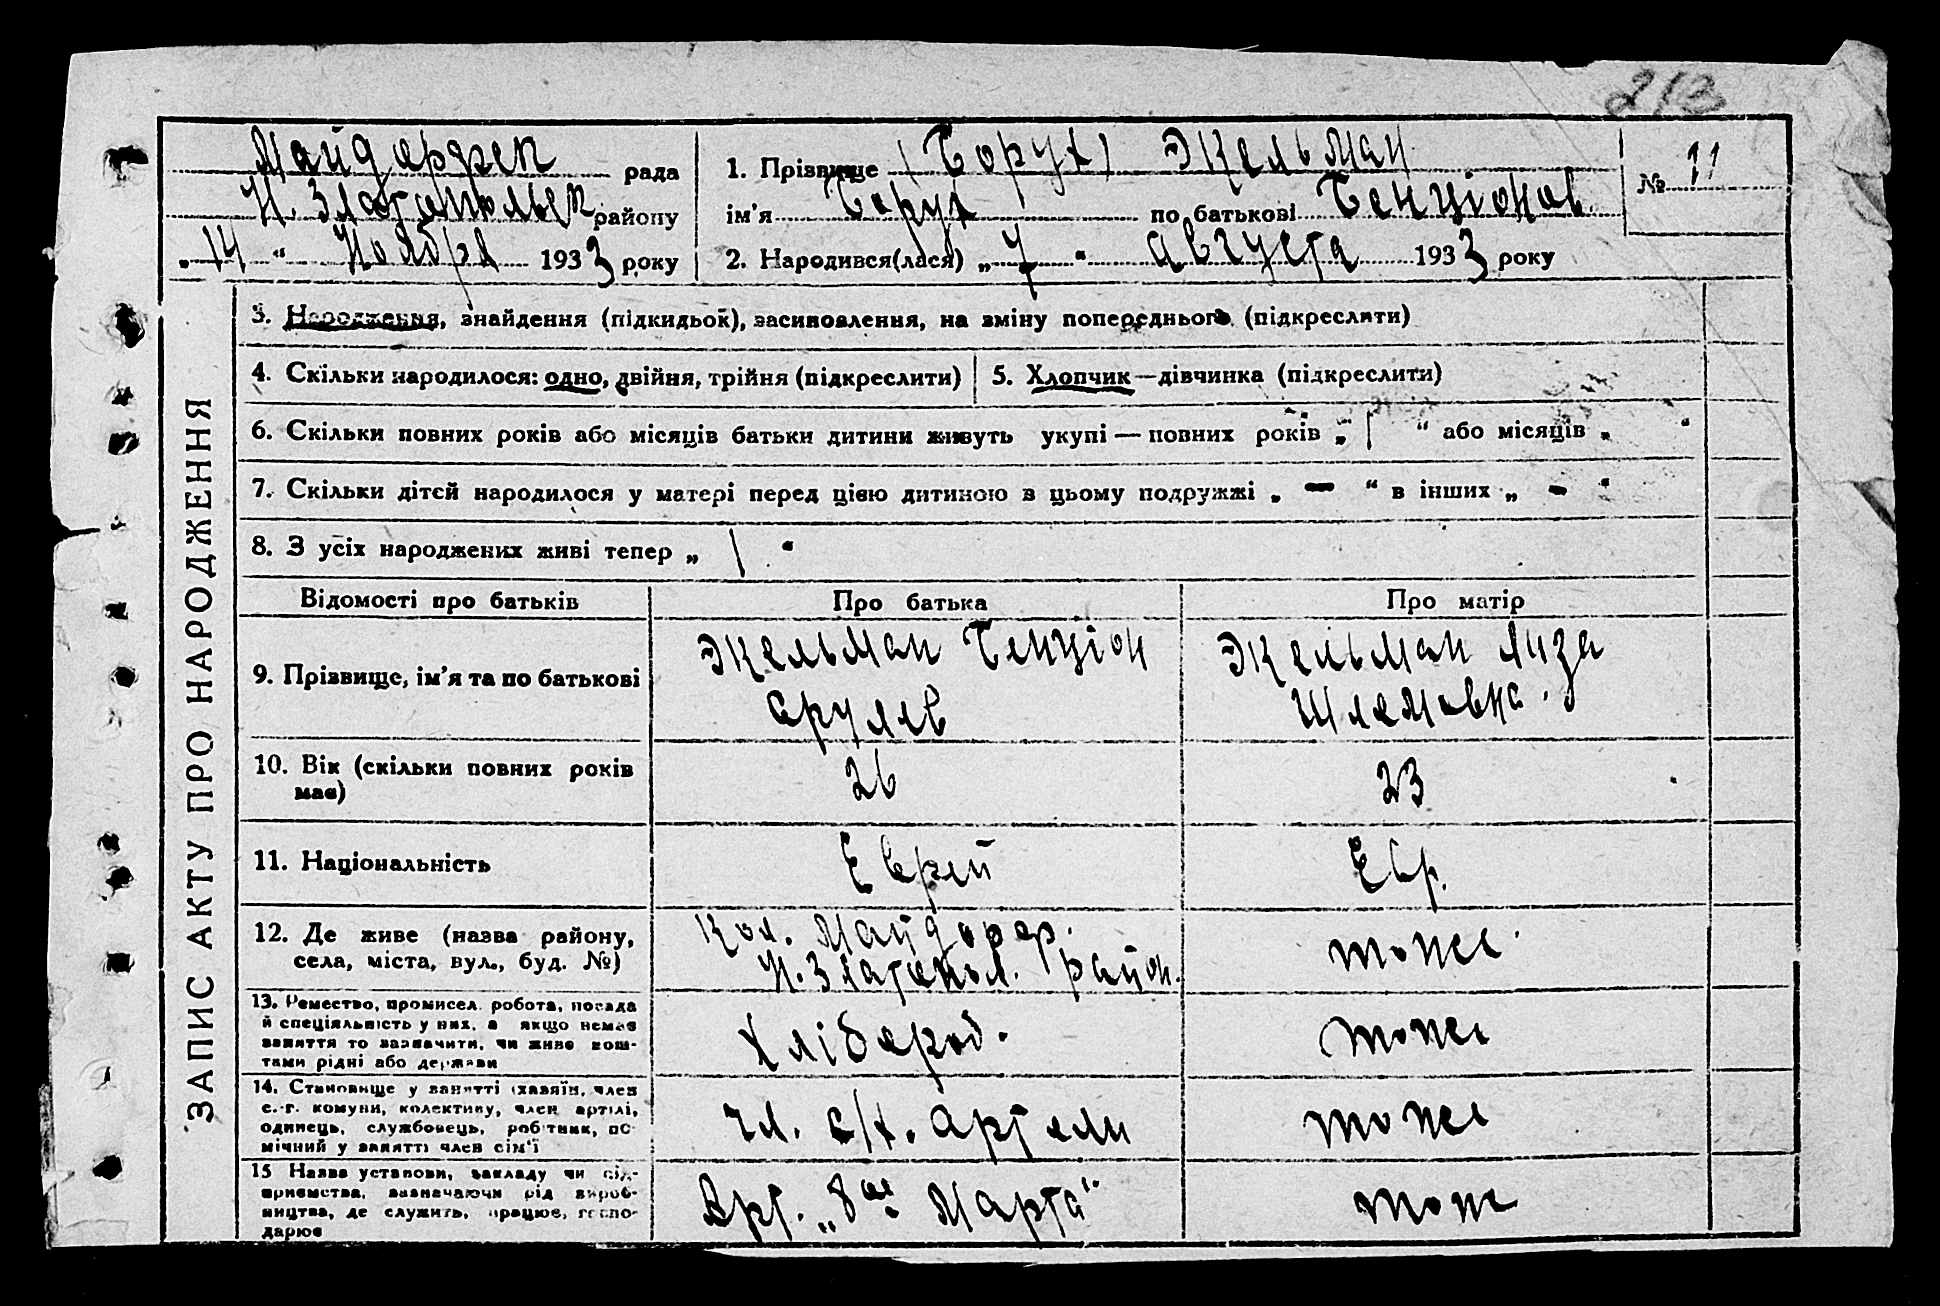 213
Майдорфск рада
Н. Златопольск району
„14“ Ноября 1933 року
1. Прізвище (Борух) Экельман
ім’я Борух по батькові Бенціонов.
2. Народився(лася) „7“ августа 1933 року
№ 11
ЗАПИС АКТУ ПРО НАРОДЖЕННЯ
3. Народження, знайдення (підкидьок), засиновлення, на зміну попереднього (підкреслити)
4. Скільки народилося: одно, двійня, трійня (підкреслити)
5. Хлопчик—дівчинка (підкреслити)
6. Скільки повних років або місяців батьки дитини живуть укупі — повних років „1“ або місяців „ “
7. Скільки дітей народилося у матері перед цією дитиною в цьому подружжі „—“ в інших „—“
8. З усіх народжених живі тепер „1“
Відомості про батьків Про батька Про матір
9. Прізвище, ім’я та по батькові
Экельман Бенціон
Срулев
Экельман Лиза
Шлемовна.
10. Вік (скільки повних років
має)
26
23
11. Національність
Еврей
Евр.
12. Де живе (назва району,
села, міста, вул., буд. №)
Кол. Майдорф.
Н. Златопол. район.
тоже
13. Ремество, промисел, робота, посада
й спеціяльність у них, а якщо немає
заняття то зазначити, чи живе кош-
тами рідні або держави
Хлібороб.
тоже
14. Становище у занятті (хазяїн, член
с.-г. комуни, колективу, член артілі,
одинець, службовець, робітник, по-
мічний у занятті член сім’ї
чл. с/х. артели
тоже
15 Назва установи, закладу чи під-
приємства, зазначаючи рід вироб-
ництва, де служить, працює, госпо-
дарює
Арт. „8ое Марта“
тоже